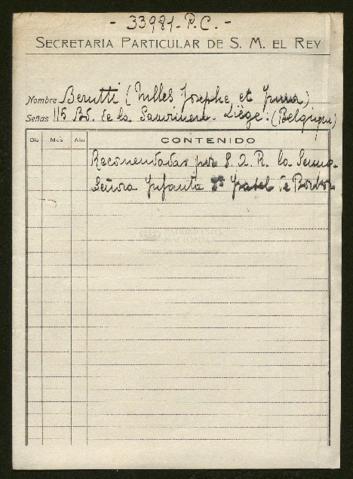 - 33981 - P.C. -
SECRETARIA PARTICULAR DE S. M. EL REY
Nombre Berutti (Mlles Josephe et
Señas 115 Bd. de la Sauvinière. Liège. (Belgique)
Día Mes Año CONTENIDO
Recomendadas por S. A. R. la Serma.
Señora Infanta Dª Isabel de Borbon